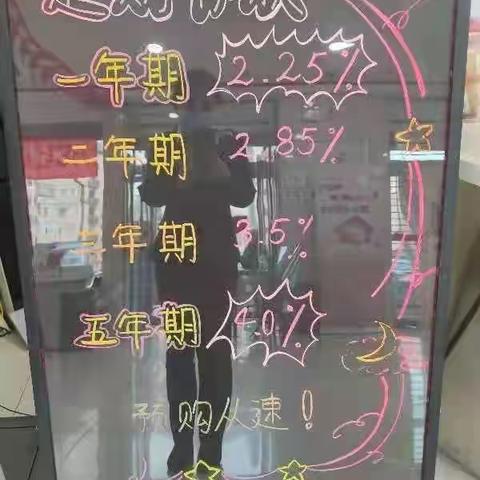 一年期 2.25%
二年期 2.85%
三年期 3.5%
五年期 4.0%
预购从速！